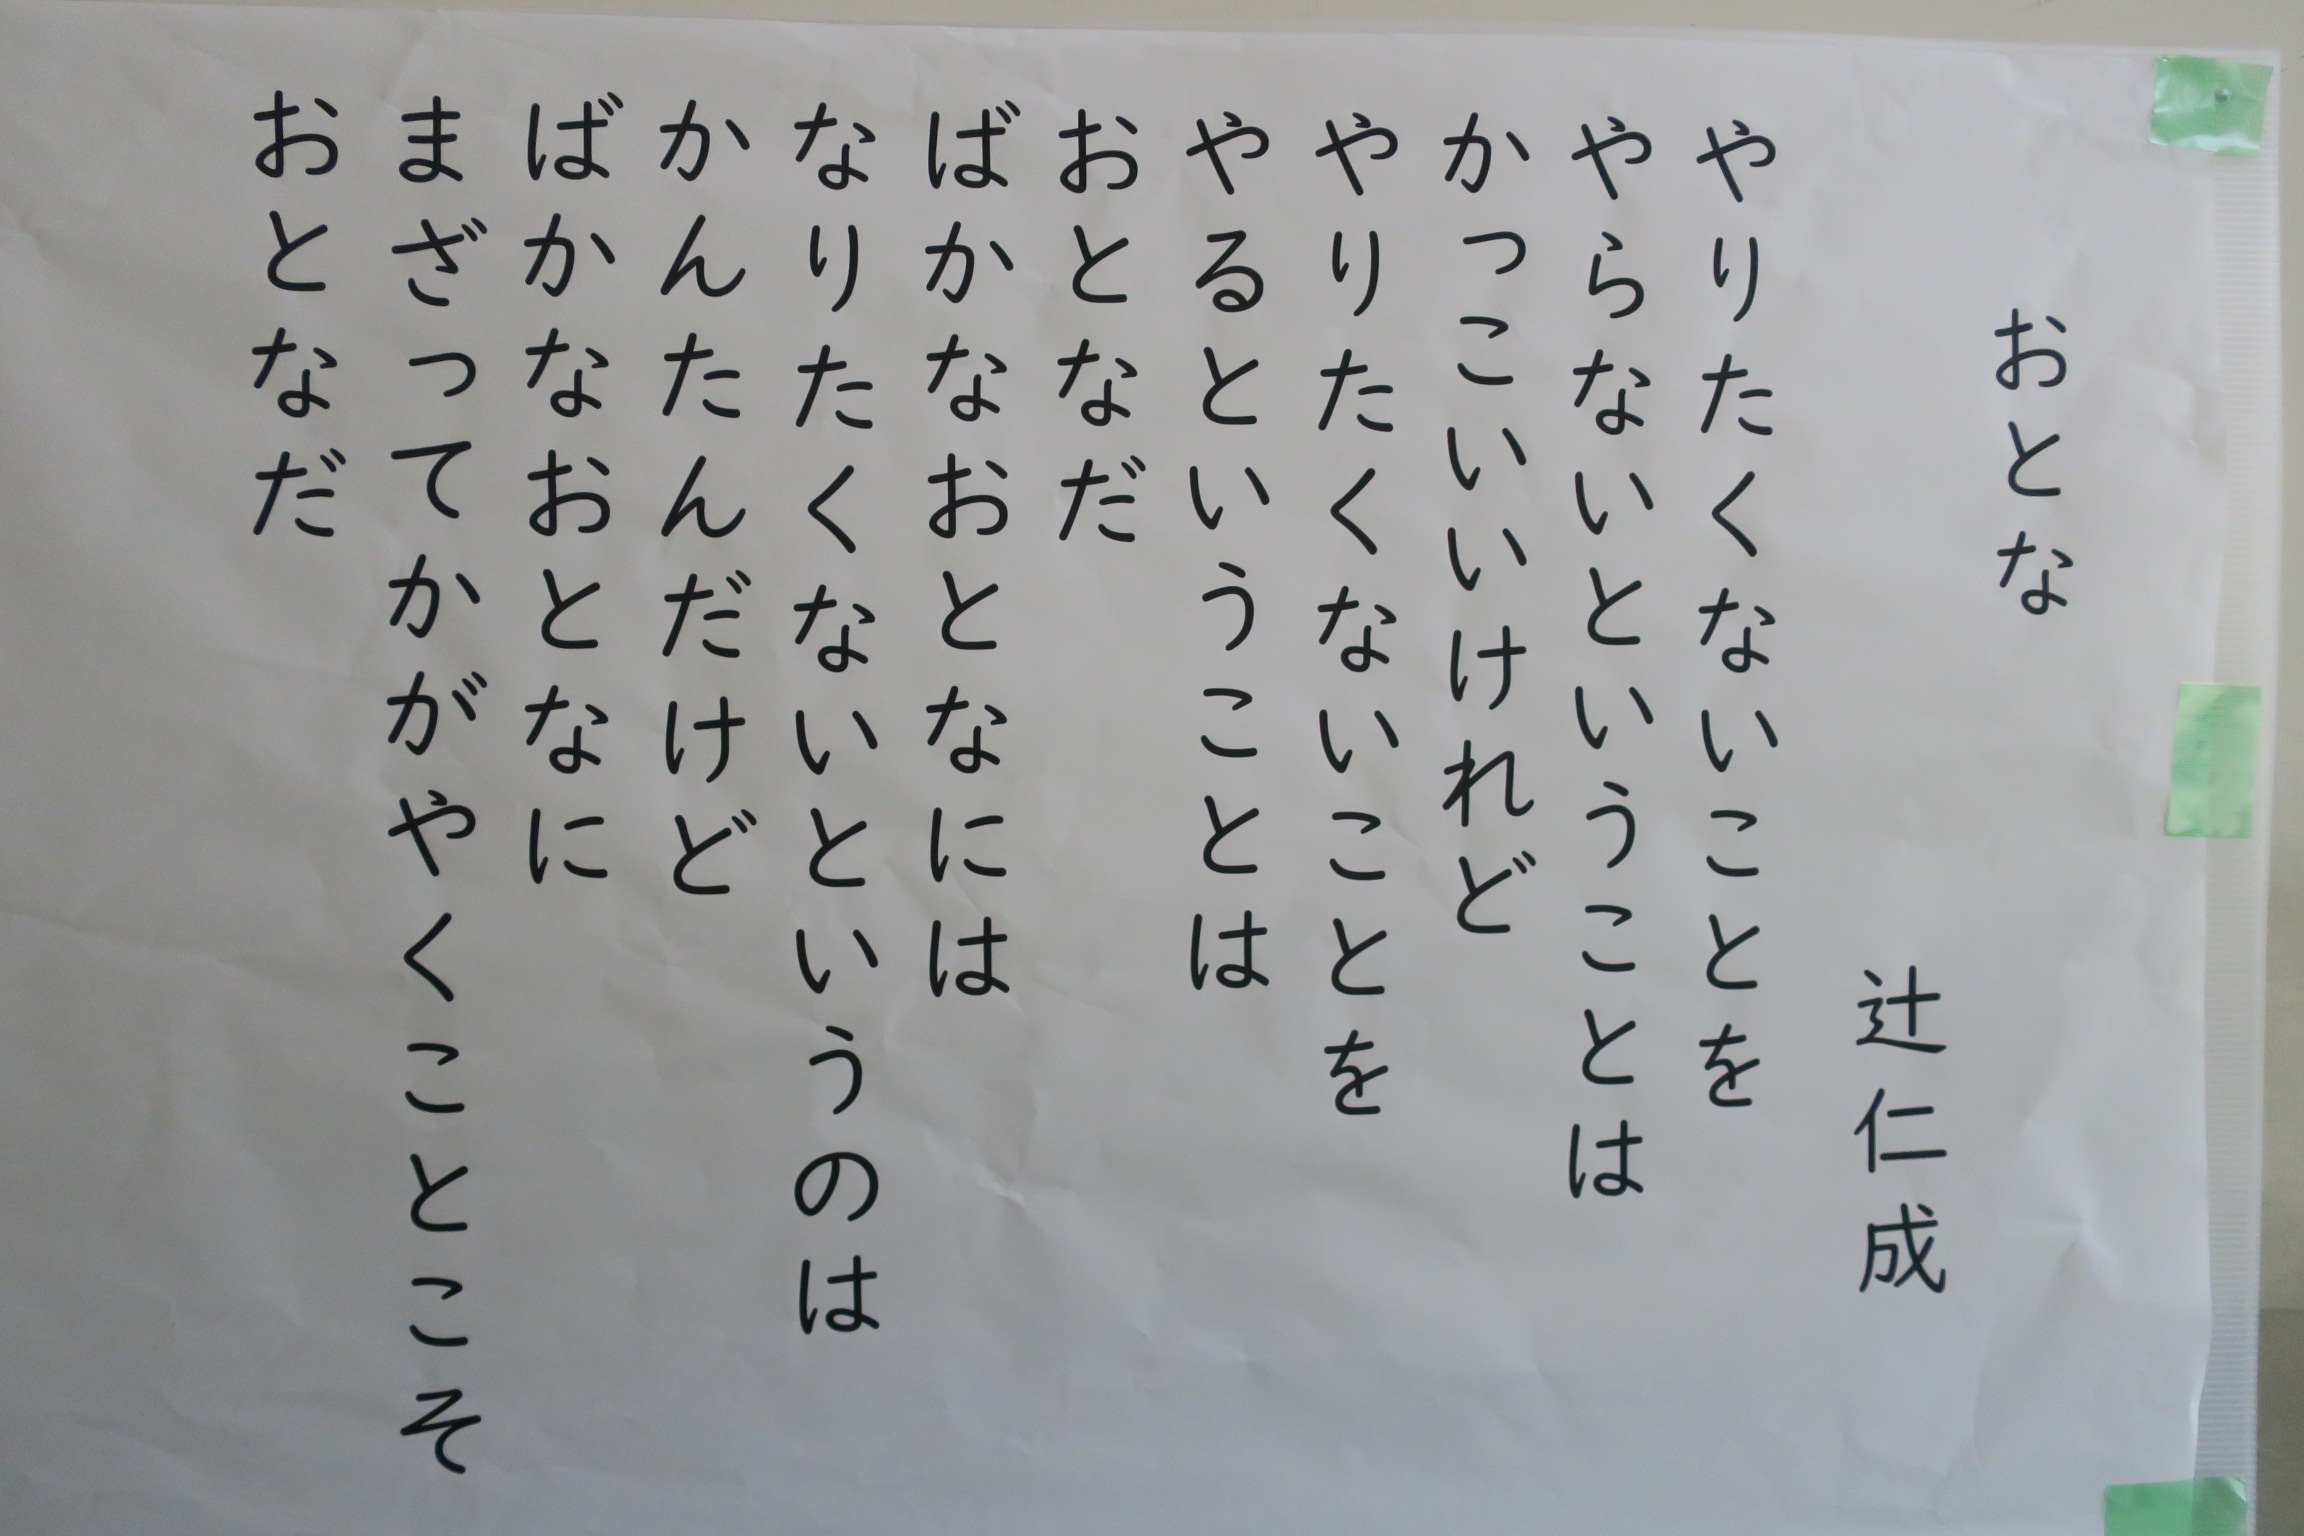 おとな
辻仁成
やりたくないことを
やらないということは
かっこいいけれど
やりたくないことを
やるということは
おとなだ
ばかなおとなには
なりたくないというのは
かんたんだけど
ばかなおとなに
まざってかがやくことこそ
おとなだ